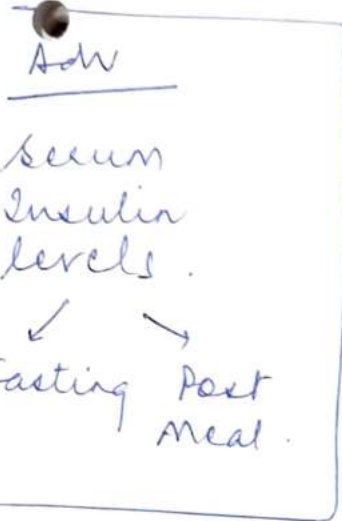 Adv
Serum
Insulin
levels.
Fasting Post
Meal.